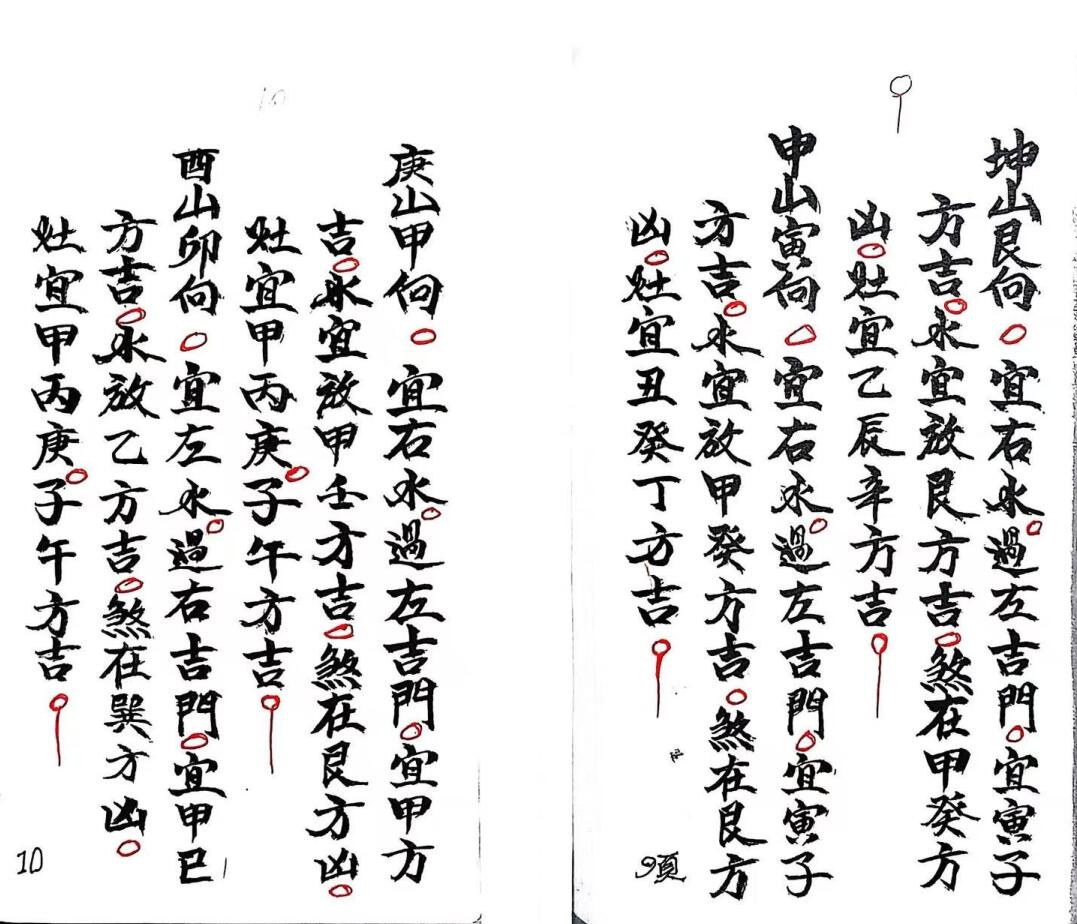 坤山艮向○宜右水○過左吉門○宜寅子
方吉○水宜放艮方吉○煞在甲癸方
凶○灶宜乙辰辛方吉
申山寅向○宜右水○過左吉門○宜寅子
方吉○水宜放甲癸方吉○煞在艮方
凶○灶宜丑癸丁方吉
9頁
10
庚山甲向○宜右水○過左吉門○宜甲方
吉○水宜放甲壬方吉○煞在艮方凶○
灶宜甲丙庚○子午方吉
酉山卯向○宜左水○過右吉門○宜甲巳
方吉○水放乙方吉○煞在巽方凶○
灶宜甲丙庚○子午方吉
10